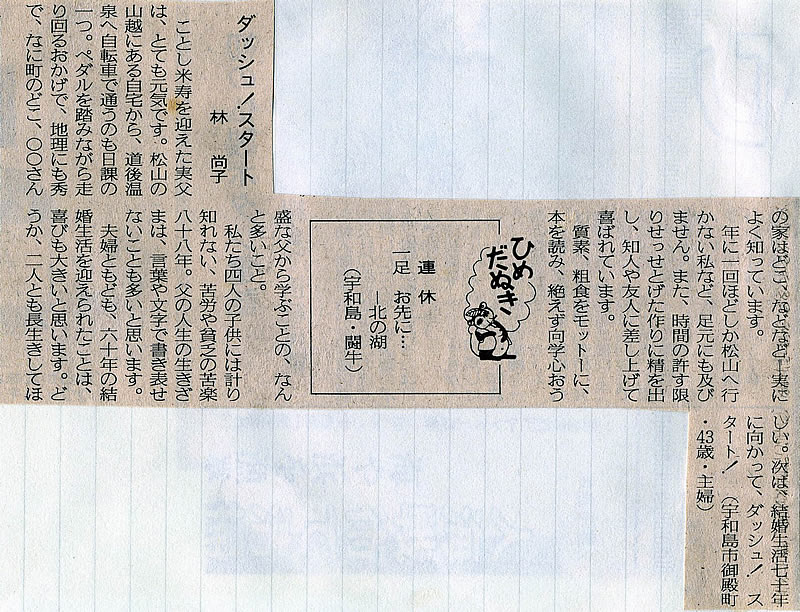 ダッシュ！スタート
林　尚子
ことし米寿を迎えた実父
は、とても元気です。松山の
山越にある自宅から、道後温
泉へ自転車で通うのも日課の
一つ。ペダルを踏みながら走
り回るおかげで、地理にも秀
で、なに町のどこ、〇〇さん
の家はどこ、などなど―実に
よく知っています。
年に一回ほどしか松山へ行
かない私など、足元にも及び
ません。また、時間の許す限
りせっせとげた作りに精を出
し、知人や友人に差し上げて
喜ばれています。
質素、粗食をモットーに、
本を読み、絶えず向学心おう
盛な父から学ぶことの、なん
と多いこと。
私たち四人の子供には計り
知れない、苦労や貧乏の苦楽
八十八年。父の人生の生きざ
まは、言葉や文字で書き表せ
ないことも多いと思います。
夫婦ともども、六十年の結
婚生活を迎えられたことは、
喜びも大きいと思います。ど
うか、二人とも長生きしてほ
しい。次は、結婚生活七十年
に向かって、ダッシュ！ス
タート！　（宇和島市御殿町
・43歳・主婦）
ひめ
だぬき
連休
一足　お先に…
―北の湖
（宇和島・闘牛）